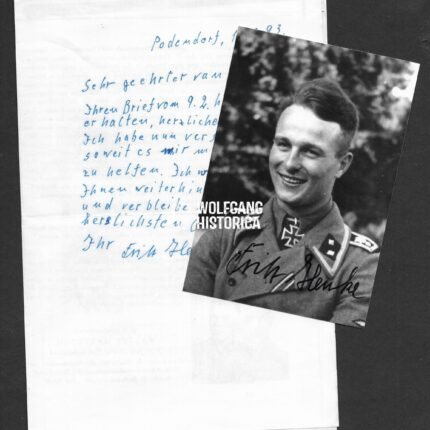 Podendorf,
Sehr geehrter van
Ihren Brief vom 9.2. h
erhalten, herzliche
Ich habe nun vers
soweit es mir m
zu helfen. Ich w
Ihnen weiterhin
und verbleibe
herzlichsten
Ihr Erich
WOLFGANG
HISTORICA
Erich